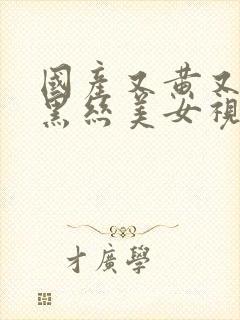 國產又黃又
黑絲美女視
才廣學